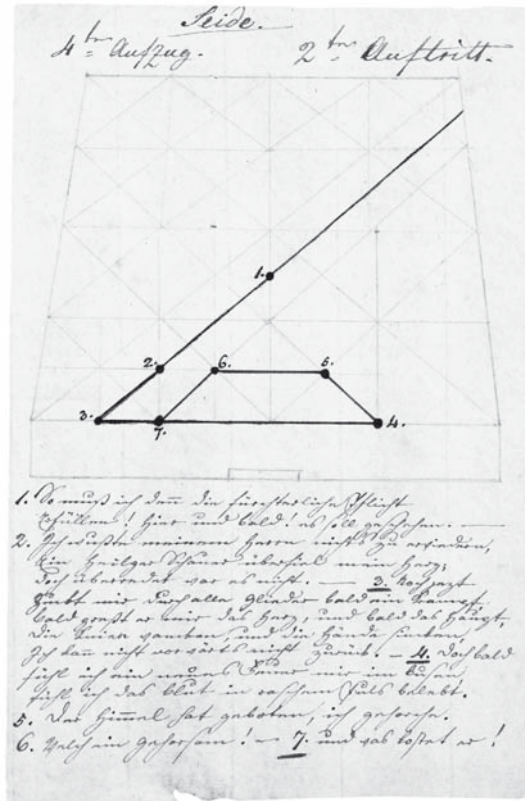 Seide.
4ter Aufzug. 2ter Auftritt.
1.
2.
6.
5.
3.
7.
4.
1. So muß ich denn die fürchterliche Pflicht
Erfüllen! hier und bald! es soll geschehen. —
2. Ich wußte meinem Herrn nichts zu erwiedern,
Ein heilger Schauer überfiel mein Herz;
doch überredet war es nicht. — 3. Noch jetzt
Zuckt mir durch alle Glieder bald ein Krampf
bald preßt er mir das Herz, und bald das Haupt,
die Kniee wanken, und die Hände sinken,
Ich kann nicht vorwärts nicht zurück. — 4. Doch bald
fühl ich ein neues Feuer mir im Busen
fühl ich das Blut in raschem Puls belebt.
5. Der Himmel hat geboten, ich gehorche.
6. Welch ein Gehorsam! — 7. und was kostet er!